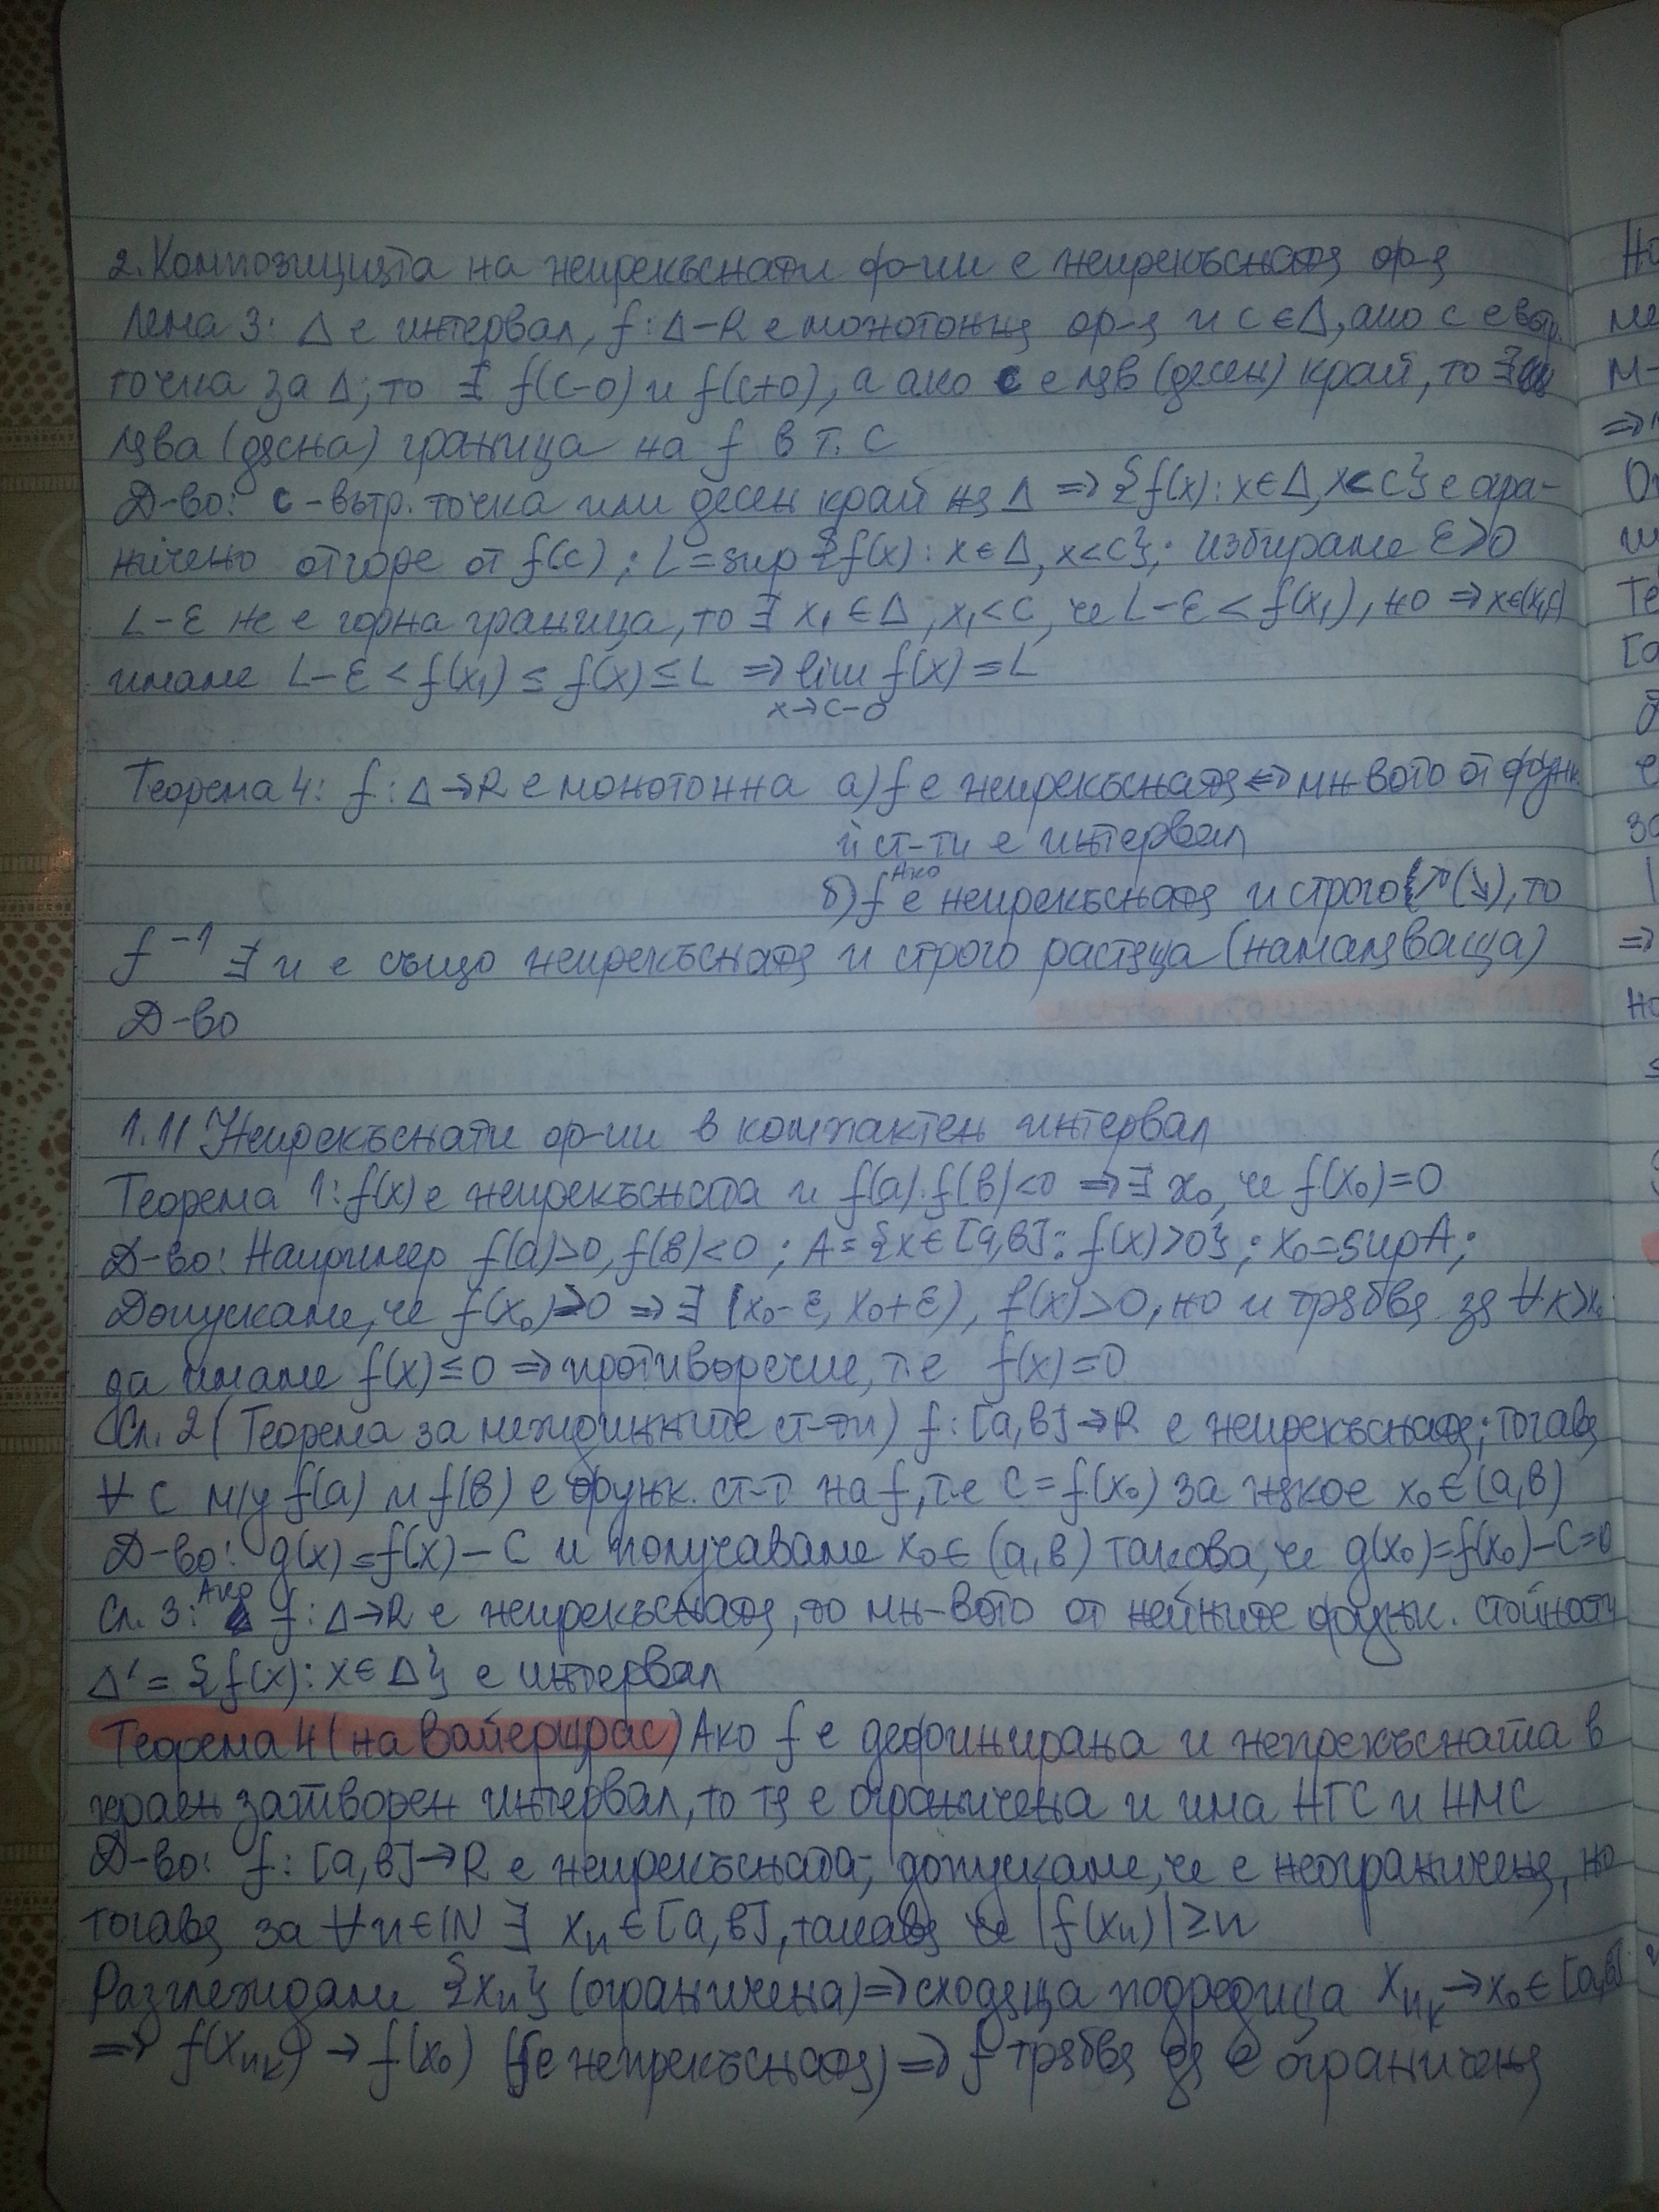 2. Композицията на непрекъснати ф-ии е непрекъсната ф-я
Лема 3: Δ е интервал, f: Δ→R е монотонна ф-я и c∈Δ, ако c е вътр.
точка за Δ, то ∃ f(c-0) и f(c+0), а ако c е ляв (десен) край, то ∃
лява (дясна) граница на f в т. c
Д-во: c - вътр. точка или десен край на Δ ⇒ {f(x): x∈Δ, x<c} е огра-
ничено отгоре от f(c); L = sup {f(x): x∈Δ, x<c}; избираме ε>0
L-ε не е горна граница, то ∃ x₁∈Δ, x₁<c, че L-ε < f(x₁), но ⇒ x∈(x₁,c)
имаме L-ε < f(x₁) ≤ f(x) ≤ L ⇒ lim f(x) = L
x→c-0
Теорема 4: f: Δ→R е монотонна а) f е непрекъсната ⇔ мн-вото от функ.
ѝ ст-ти е интервал
б) Ако f е непрекъсната и строго ↗(↘), то
f⁻¹ ∃ и е също непрекъсната и строго растяща (намаляваща)
Д-во
1.11 Непрекъснати ф-ии в компактен интервал
Теорема 1: f(x) е непрекъсната и f(a).f(b)<0 ⇒ ∃ x₀, че f(x₀)=0
Д-во: Например f(a)>0, f(b)<0; A = {x∈[a,b]: f(x)>0}; x₀=supA;
Допускаме, че f(x₀)>0 ⇒ ∃ (x₀-ε, x₀+ε), f(x)>0, но и трябва за ∀x>x₀
да имаме f(x)≤0 ⇒ противоречие, т.е f(x)=0
Сл. 2 (Теорема за междинните ст-ти) f: [a,b]→R е непрекъсната; тогава
∀ C м/у f(a) и f(b) е функ. ст-т на f, т.е C = f(x₀) за някое x₀∈(a,b)
Д-во: g(x)=f(x)-C и получаваме x₀∈(a,b) такова, че g(x₀)=f(x₀)-C=0
Сл. 3: Ако f: Δ→R е непрекъсната, то мн-вото от нейните функ. стойности
Δ' = {f(x): x∈Δ} е интервал
Теорема 4 (на Вайерщрас) Ако f е дефинирана и непрекъсната в
краен затворен интервал, то тя е ограничена и има НГС и НМС
Д-во: f: [a,b]→R е непрекъсната; допускаме, че е неограничена, но
тогава за ∀n∈ℕ ∃ xₙ∈[a,b], такава че |f(xₙ)|≥n
Разглеждаме {xₙ} (ограничена) ⇒ сходяща подредица xₙₖ→x₀∈[a,b]
⇒ f(xₙₖ) → f(x₀) (f е непрекъсната) ⇒ f трябва да е ограничена